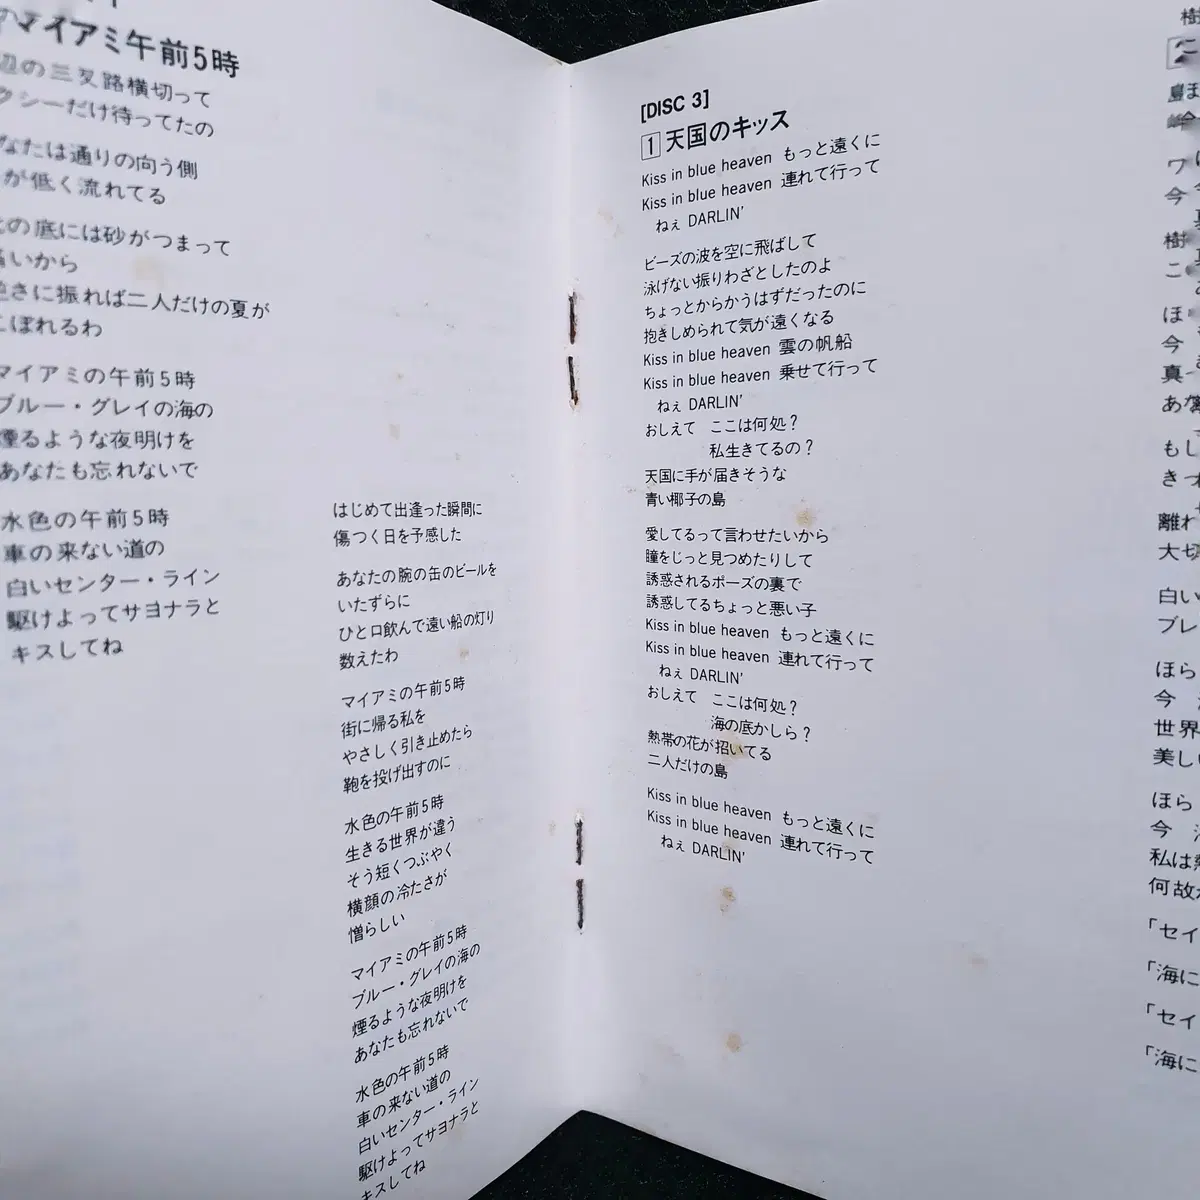 マイアミ午前5時
の三叉路横切って
クシーだけ待ってたの
なたは通りの向う側
が低く流れてる
の底には砂がつまって
いから
さに振れば二人だけの夏が
こぼれるわ
マイアミの午前5時
ブルー・グレイの海の
煙るような夜明けを
あなたも忘れないで
水色の午前5時
車の来ない道の
白いセンター・ライン
駆けよってサヨナラと
キスしてね
はじめて出逢った瞬間に
傷つく日を予感した
あなたの腕の缶のビールを
いたずらに
ひと口飲んで遠い船の灯り
数えたわ
マイアミの午前5時
街に帰る私を
やさしく引き止めたら
鞄を投げ出すのに
水色の午前5時
生きる世界が違う
そう短くつぶやく
横顔の冷たさが
憎らしい
マイアミの午前5時
ブルー・グレイの海の
煙るような夜明けを
あなたも忘れないで
水色の午前5時
車の来ない道の
白いセンター・ライン
駆けよってサヨナラと
キスしてね
[DISC 3]
1 天国のキッス
Kiss in blue heaven もっと遠くに
Kiss in blue heaven 連れて行って
ねぇ DARLIN'
ビーズの波を空に飛ばして
泳げない振りわざとしたのよ
ちょっとからかうはずだったのに
抱きしめられて気が遠くなる
Kiss in blue heaven 雲の帆船
Kiss in blue heaven 乗せて行って
ねぇ DARLIN'
おしえて ここは何処?
私生きてるの?
天国に手が届きそうな
青い椰子の島
愛してるって言わせたいから
瞳をじっと見つめたりして
誘惑されるポーズの裏で
誘惑してるちょっと悪い子
Kiss in blue heaven もっと遠くに
Kiss in blue heaven 連れて行って
ねぇ DARLIN'
おしえて ここは何処?
海の底かしら?
熱帯の花が招いてる
二人だけの島
Kiss in blue heaven もっと遠くに
Kiss in blue heaven 連れて行って
ねぇ DARLIN'
樹
2
島
ワ
今
樹
こ
ほ
今
真
あな
もし
きっ
離れ
大切
白い
ブレ
ほら
今
世界
美し
ほら
今
私は
何故
「セイ
「海に
「セイ
「海に